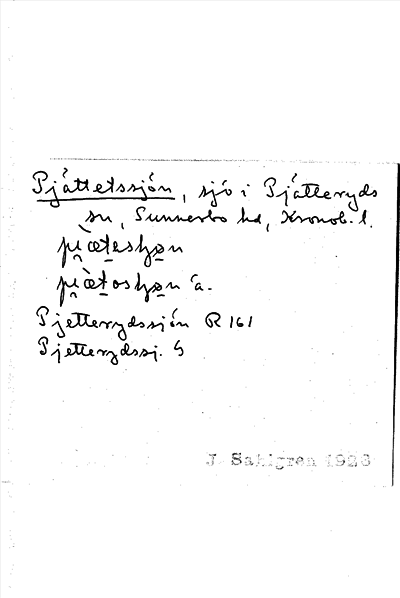 Pjáttetssjön, sjö i Pjätteryds
sn, Sunnerbo hd, Kronob. l.
pi̯æ̀teshøn
pi̯æ̀toshøn a.
Pjetterydssjön R 161
Pjetterydssj. G
J. Sahlgren 1926